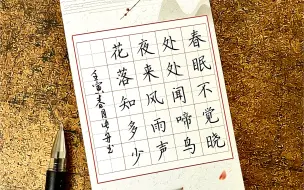 春眠不觉晓
处处闻啼鸟
夜来风雨声
花落知多少
壬寅春月